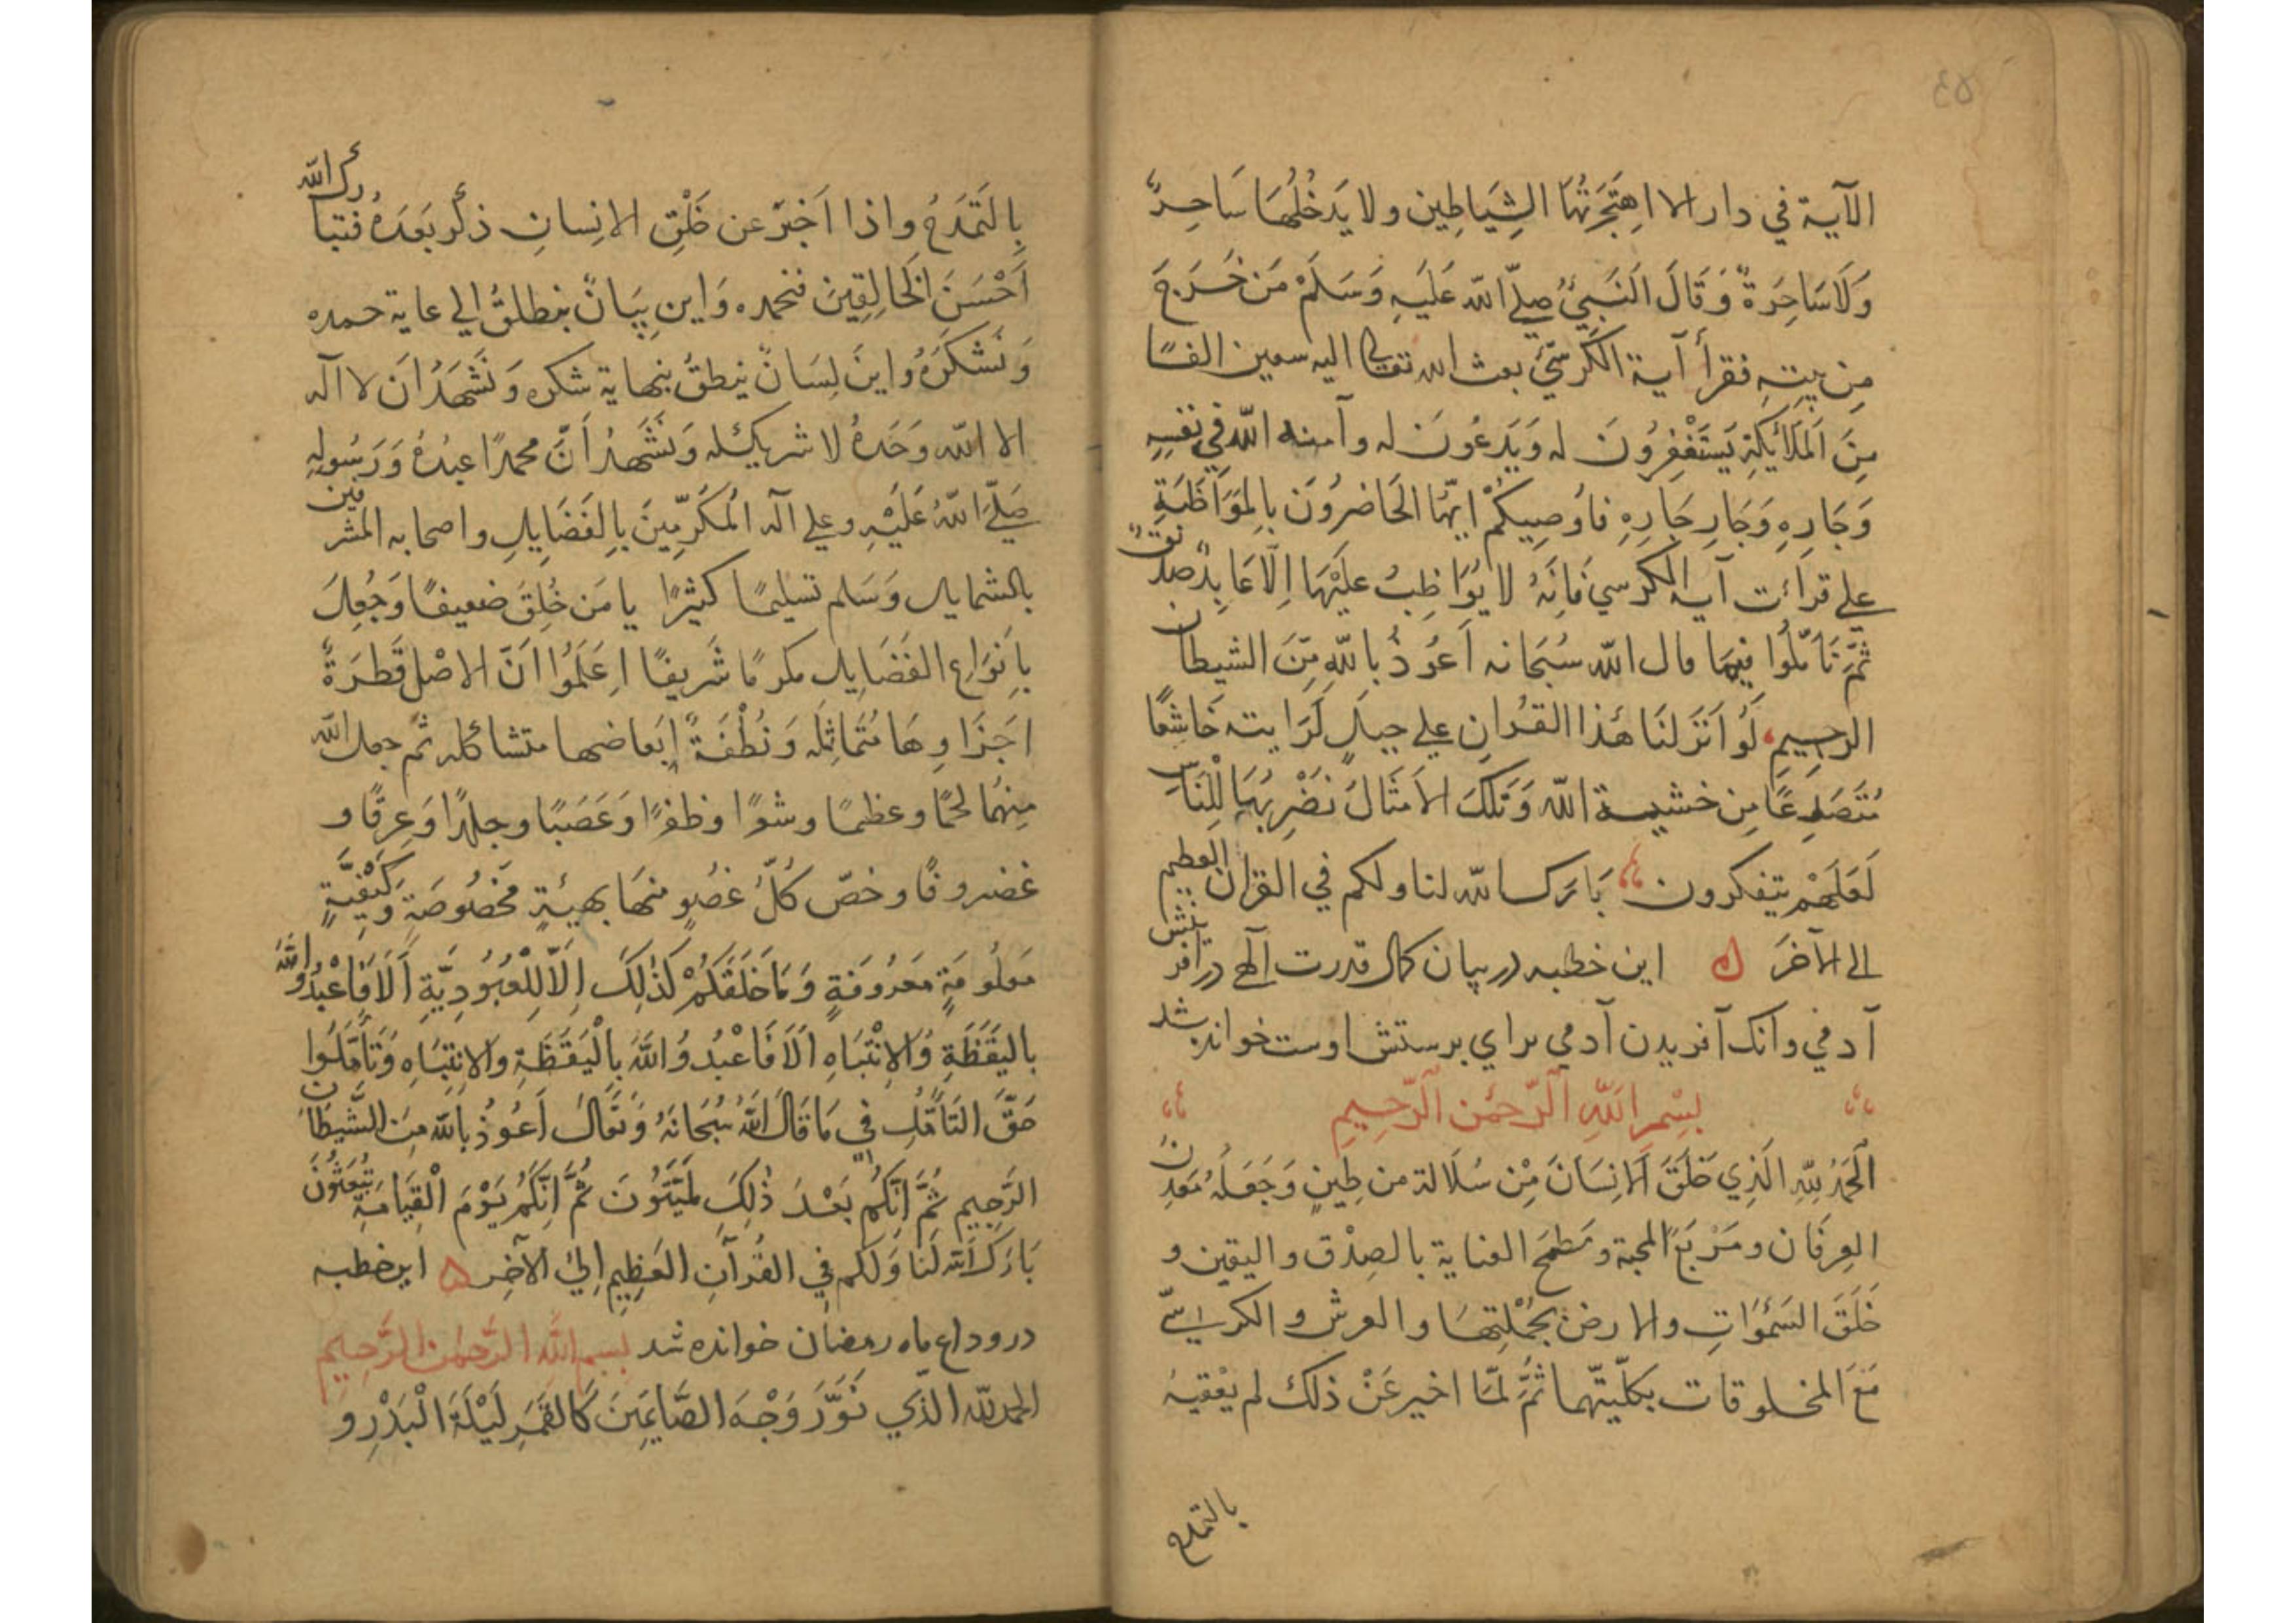 ٤٥
الآية في دار الا اهتجرتها الشياطين ولا يدخلها ساحرٌ
وَلَا سَاحِرَةٌ وَقَالَ النَبِيُّ صلّي الله عَلَيهِ وَسَلَّمْ مَن خَرَجَ
مِن بيتِهِ فقرأ آية الكرسيّ بعث الله تعالي اليه سبعين الفًا
مِنَ المَلَائِكَةِ يَسْتَغْفِرُونَ له وَيَدعُونَ له وآمنه الله في نفسِهِ
وَجَارِهِ وَجَارِ جَارِهِ فاُوصِيكُمْ ايّها الحَاضِرُونَ بالمُوَاظَبَةِ
علي قرائت آية الكرسي فَانَّهُ لا يُوَاظِبُ عليْهَا اِلَّا عَابِدٌ صدّيقٌ
ثُمَّ تَأمّلُوا فيما قال الله سُبحَانه اَعُوذُ بالله مِنَ الشيطان
الرجيم لَوْ اَنْزَلنَا هٰذا القُراٰنِ علي جبلٍ لَرَايته خَاشِعًا
مُتَصَدِعًا مِن خشية الله وَتِلكَ الاَمثَالُ نَضْرِبُهَا لِلْنَاسِ
لَعَلَهُمْ يتفكرون بَارَكَ الله لنا ولكم في القرآن العظيم
الي الآخَر ه اين خطبه در بيان كمال قدرت آلهي در آفرينش
آدمي وآنك آفريدن آدمي براي پرستش اوست خوانده شد
بِسْمِ اللّٰهِ الرَّحمٰنِ الرَّحِيمِ
اَلْحَمْدُ لِلّهِ الَذِي خَلَقَ الاِنسَانَ مِّن سُلَالة من طِينٍ وَجَعَلَهُ مَعدِن
العِرفَان ومَرْبَعَ المحبة ومَطمَحَ العناية بالصِدْق واليقين و
خَلَقَ السَمٰوَاتِ والارض بجُمْلَتِهَا والعرش والكرسيّ
مَعَ المخلوقات بكلّيتّهما ثُمَّ لمّا اخبر عَنْ ذلك لم يعْقبهُ
بالتمدح
بِالتَمَدَحُ واذا اَخبَرَ عن خَلْقِ الانِسانِ ذكر بَعدَهُ فتبارك الله
اَحْسَنَ الخَالِقِينَ فنحمده وَاين بِيَانٌ ينطلقُ الي غاية حمده
وَنَشكُرُهُ واينَ لِسَانٌ ينطقُ بنهاية شكره وَنَشهَدُ اَن لا آله
الا الله وَحَدهُ لا شريك له وَنَشَهدُ اَنَّ محمدًا عبدُهُ وَرَسُوله
صَلّيَ اللهُ عَلَيْهِ وعلي آله المُكرّمِينَ بِالفَضَايِلِ واصحابه المشرفين
بالشمايل وَسَلم تسليمًا كثيرًا يا مَن خُلِقَ ضعيفًا وَجُعِلَ
باِنوَاعِ الفَضَايل مكرمًا شَرِيفًا اِعَلَمُوا اَنَّ الاصْل قَطرَةٌ
اجَزَاوِهَا مُتَماثِلَه وَنُطْفَةٌ اَبعاضها متشاكله ثم جعل الله
مِنهُا لحمًا وعظمًا وشعرًا وظفرًا وَعَصَبًا وجلدًا وَعِرقًا و
غضروفًا وخصّ كُلَّ عُضوٍ منهَا بهيئةٍ مخصُوصَةٍ وَكَيْفِيَّةٍ
مَعلُومَةٍ مَعرُوفَةٍ وَمَا خَلَقَكُمْ كَذٰلِكَ اِلّا لِلْعُبُودِيَّةِ اَلَا فَاعْبُدُوا اللهَ
باليَقَظَةِ وَالاِنْتِبَاهِ اَلَا فَاعْبُدُوا اللهَ بِالْيَقَظَةِ والانتِبَاهِ وَتَأَمَّلُوا
حَقَّ التَأمُّلِ فِي مَا قَالَ اللهُ سُبْحَانَهُ وَتَعَالَ اَعُوذُ بالله مِنَ الشَّيطَان
الرَّجِيمِ ثُمَّ اِنَّكُم بَعْدَ ذٰلِكَ لَمَيِّتُونَ ثُمَّ اِنَّكُمْ يَوْمَ الْقِيَامَةِ تُبعَثُونَ
بَارَكَ الله لَنَا وَلَكُم فِي القُرآنِ العَظِيمِ اِلَي الآخِر ه اين خطبه
در وداع ماه رمضان خوانده شد بسم الله الرَّحمٰن الرَّحِيم
الحمد لله الذّي نَوَّرَ وَجْهَ الصَّائِمِينَ كَالقَمَرِ لَيْلَةَ الْبَدْرِ وَ